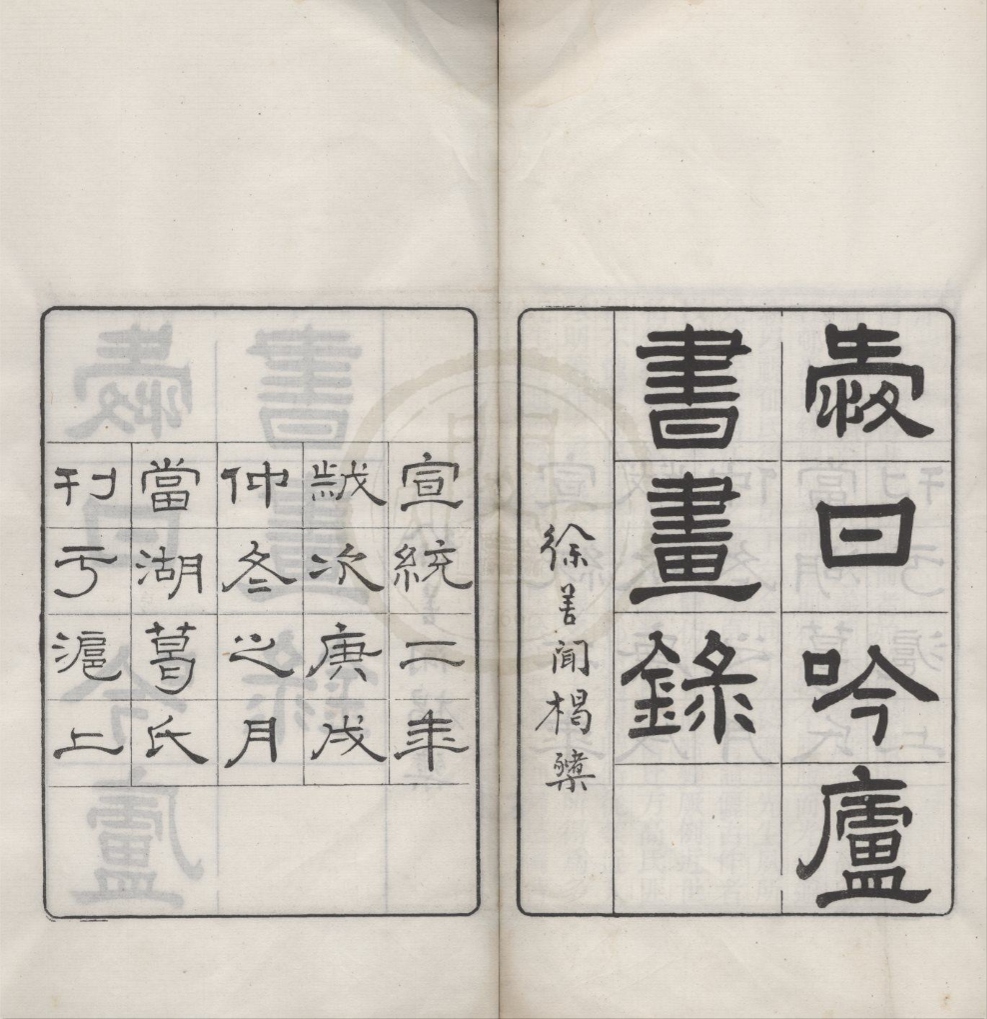 愛日吟廬
書畫錄
徐善聞楬櫫
宣統二年
歲次庚戌
仲冬之月
當湖葛氏
刊于滬上